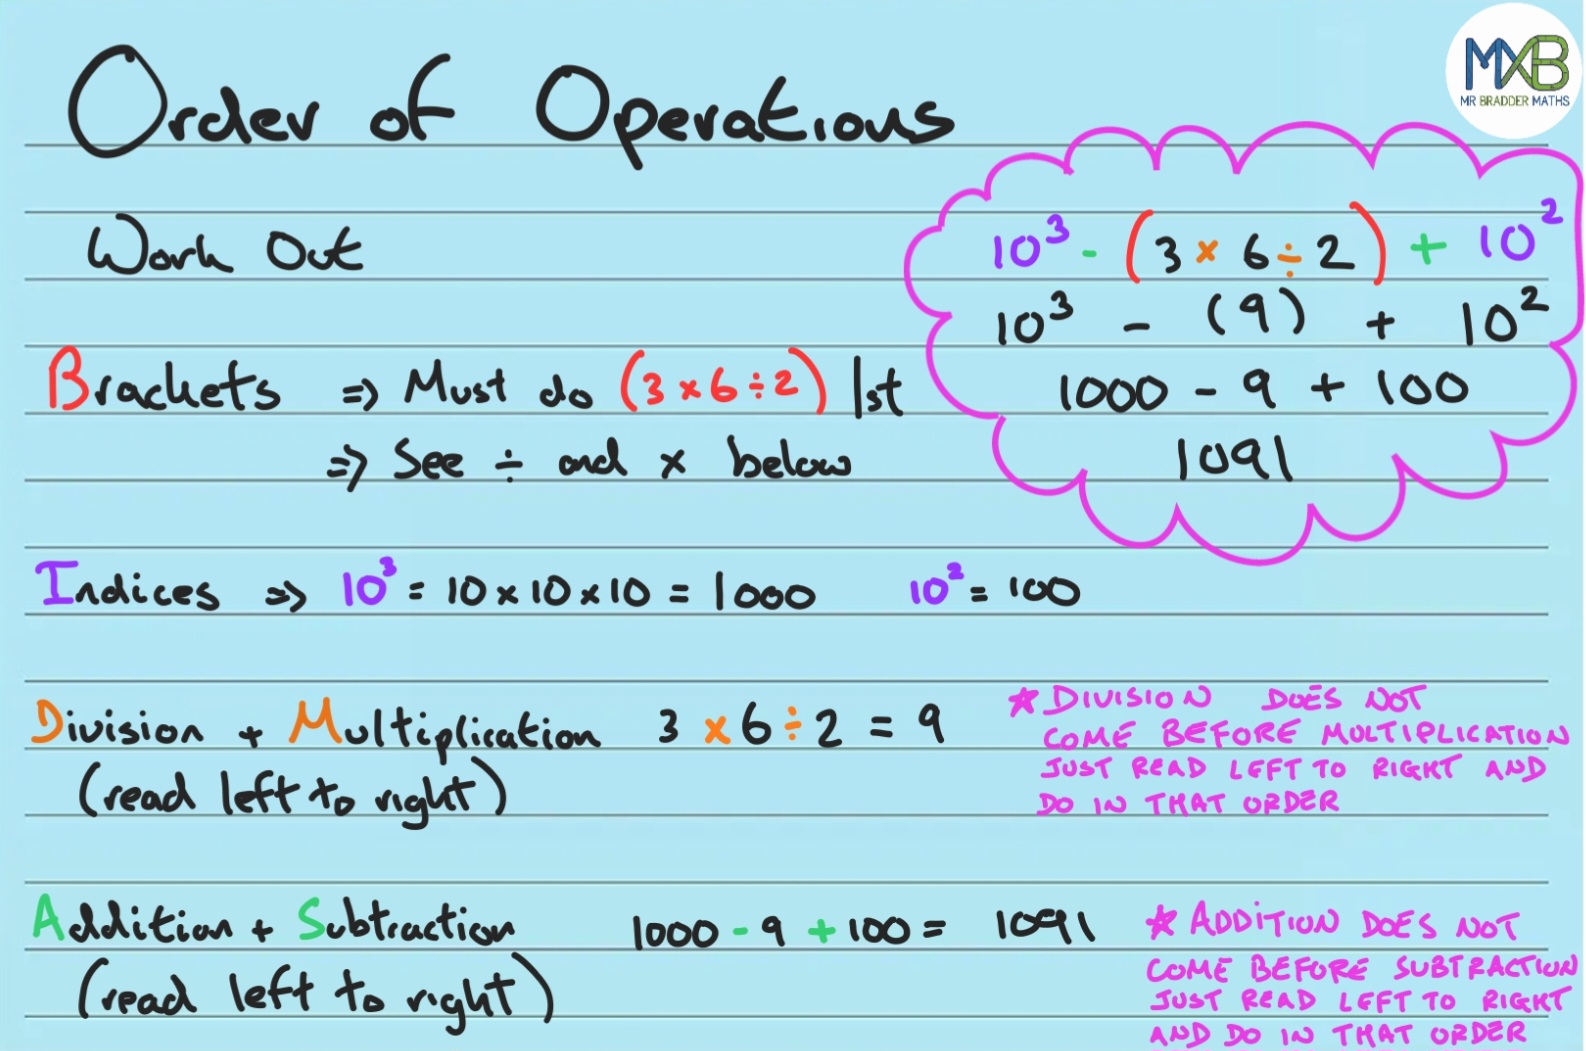 Order of Operations
MXB
MR BRADDER MATHS
Work Out
10³ - (3 × 6 ÷ 2) + 10²
10³ - (9) + 10²
1000 - 9 + 100
1091
Brackets ⇒ Must do (3 × 6 ÷ 2) 1st
⇒ See ÷ and × below
Indices ⇒ 10³ = 10 × 10 × 10 = 1000 10² = 100
Division + Multiplication 3 × 6 ÷ 2 = 9
(read left to right)
* DIVISION DOES NOT
COME BEFORE MULTIPLICATION
JUST READ LEFT TO RIGHT AND
DO IN THAT ORDER
Addition + Subtraction 1000 - 9 + 100 = 1091
(read left to right)
* ADDITION DOES NOT
COME BEFORE SUBTRACTION
JUST READ LEFT TO RIGHT
AND DO IN THAT ORDER